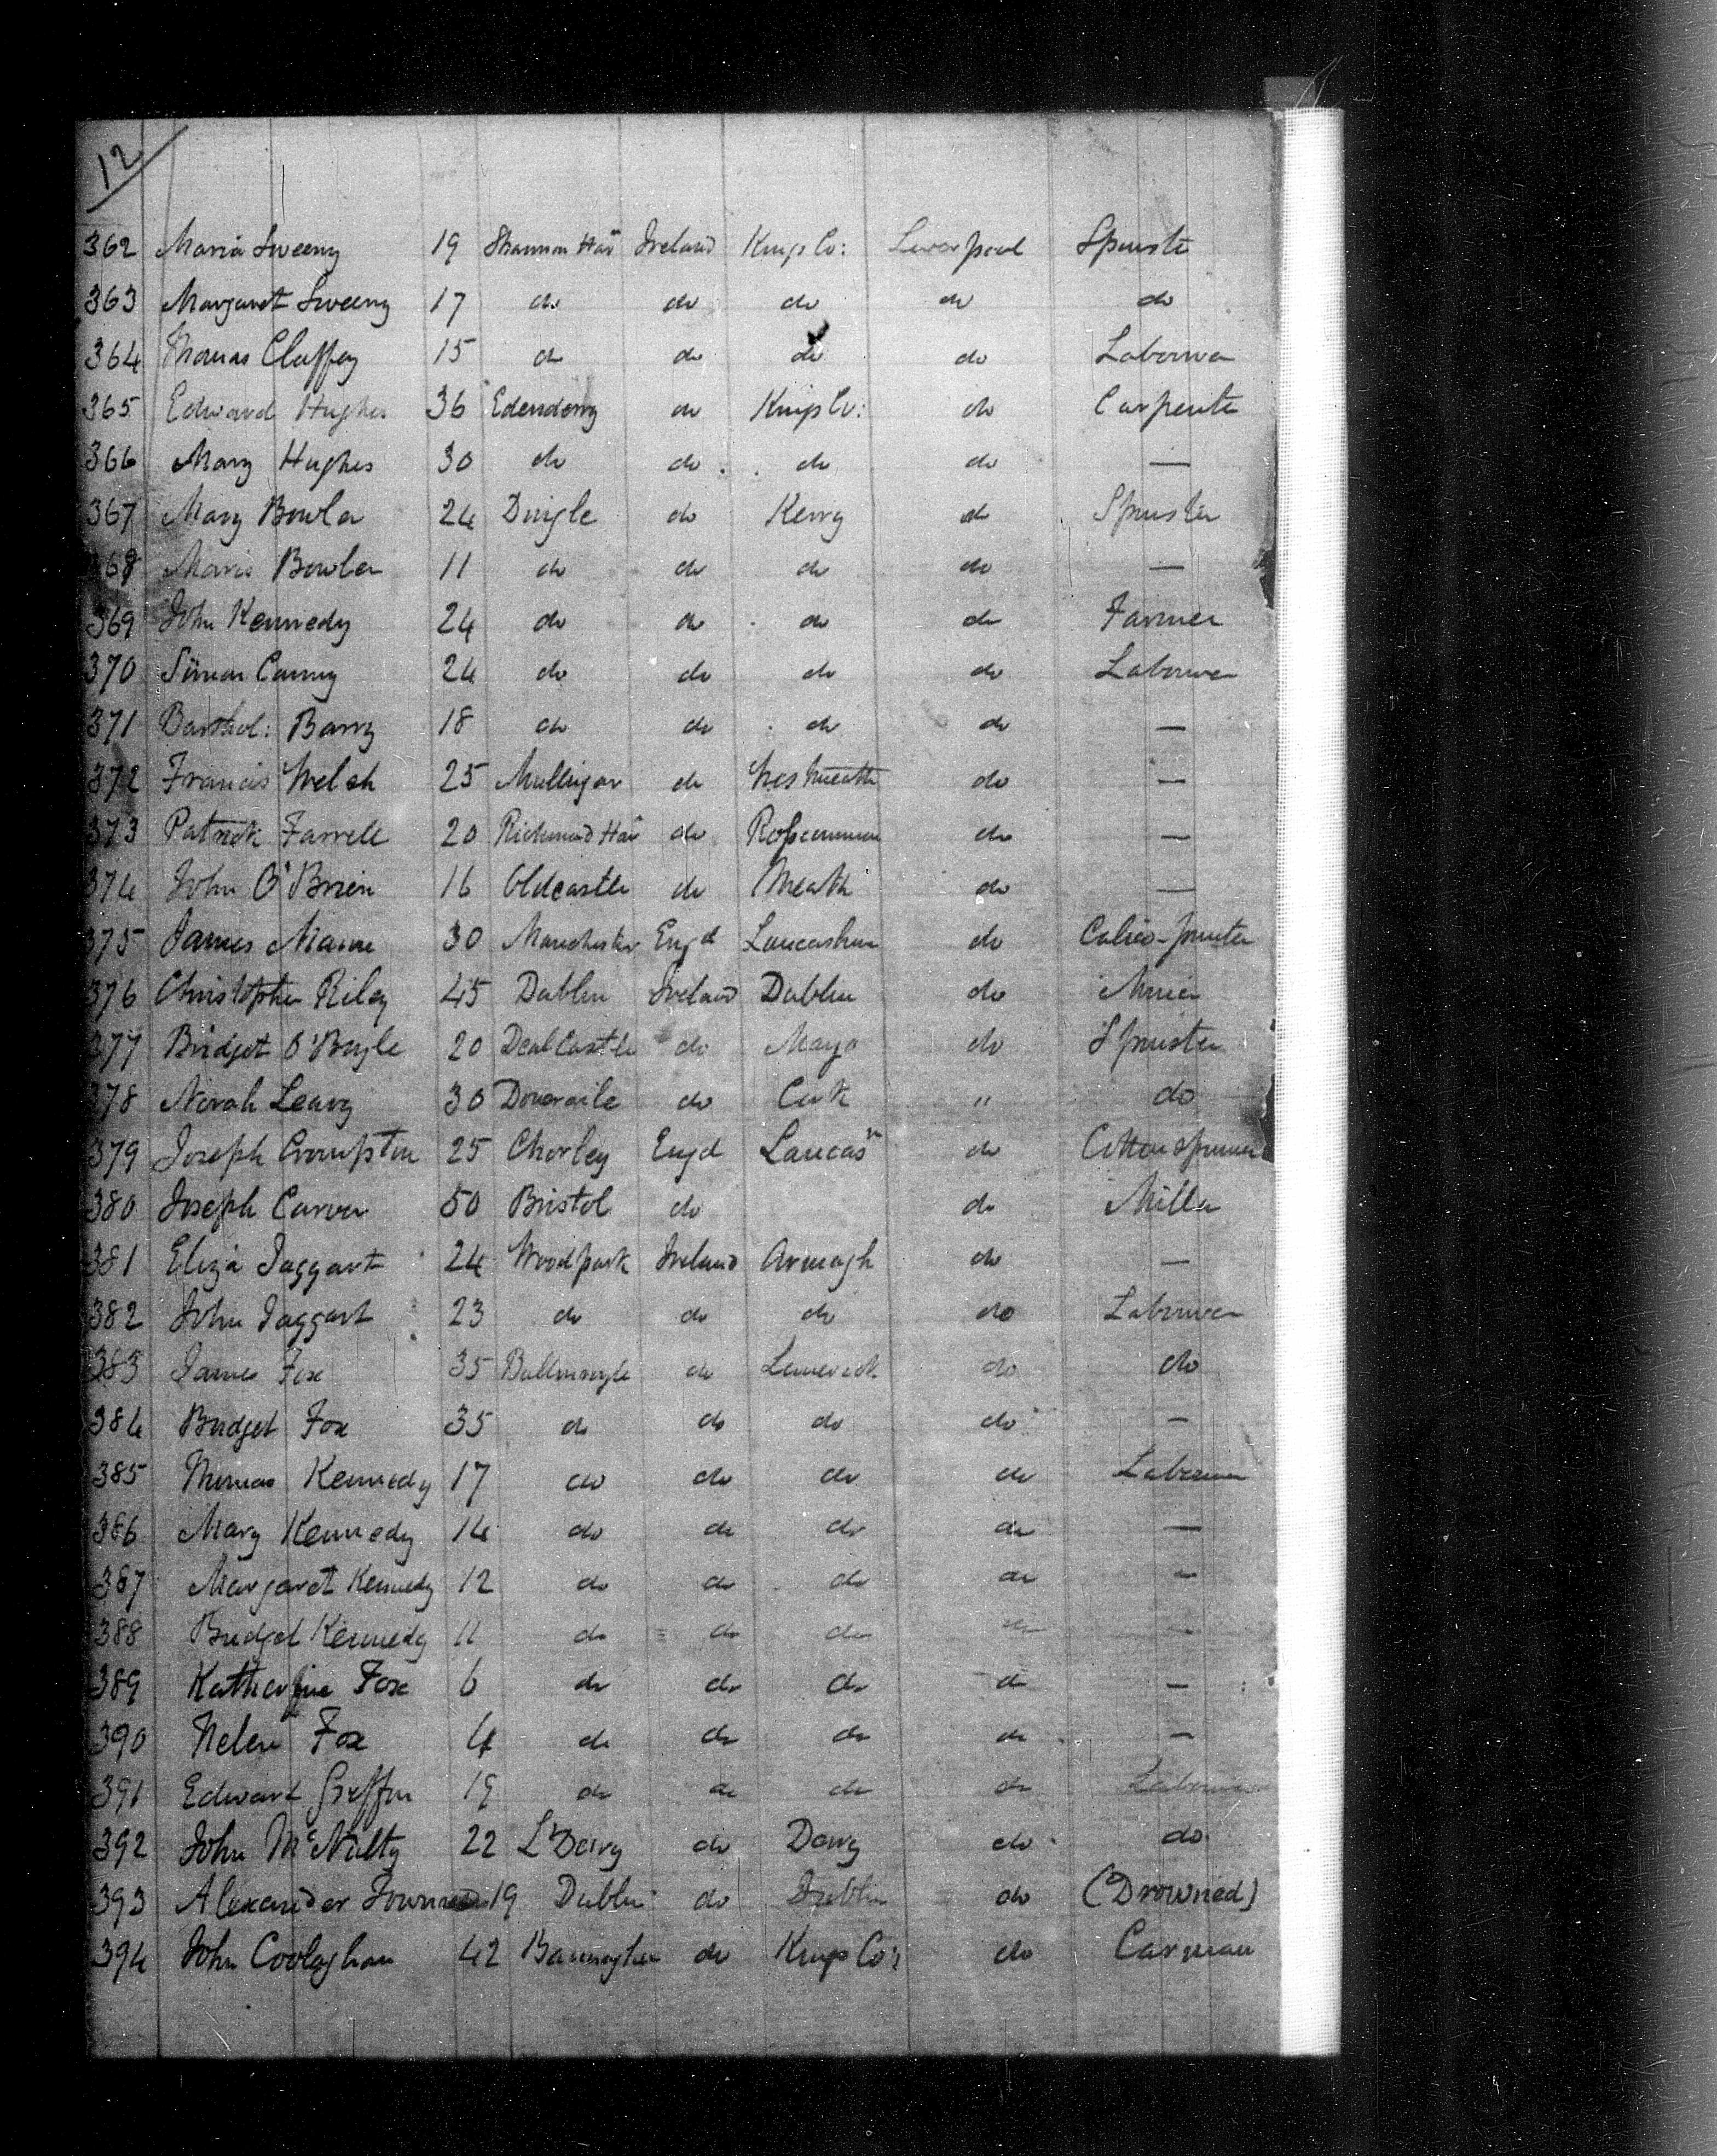 12
362 Maria Sweeny 19 Shannon Har Ireland Kings Co: Liverpool Spinste
363 Margaret Sweeny 17 do do do do do
364 Thomas Claffey 15 do do do do Labourer
365 Edward Hughes 36 Edenderry do Kings Co: do Carpente
366 Mary Hughes 30 do do do do —
367 Mary Bowler 24 Dingle do Kerry do Spinster
368 Bowler 11 do do do do —
369 John Kennedy 24 do do do do Farmer
370 Simon 24 do do do do Labourer
371 Barthol: Barry 18 do do do do —
372 Francis Welsh 25 Mullingar do Westmeath do —
373 Patrick Farrell 20 Richmond Har do Roscommon do —
374 John O'Brien 16 Oldcastle do Meath do —
375 James 30 Manchester Engd Lancashire do Calico-printer
376 Christopher Riley 45 Dublin Ireland Dublin do
377 Bridget O'Boyle 20 do Mayo do Spinster
378 Norah Leary 30 Doneraile do Cork " do
379 Joseph Crompton 25 Chorley Engd Lancasr do Cotton spinner
380 Joseph Carver 50 Bristol do do Miller
381 Eliza Taggart 24 Woodpark Ireland Armagh do —
382 John Taggart 23 do do do do Labourer
383 James Fox 35 do Limerick do do
384 Bridget Fox 35 do do do do —
385 Thomas Kennedy 17 do do do do Labourer
386 Mary Kennedy 14 do do do do —
387 Margaret Kennedy 12 do do do do —
388 Bridget Kennedy 11 do do do do —
389 Katharine Fox 6 do do do do —
390 Helen Fox 4 do do do do —
391 Edward Griffin 19 do do do do Labourer
392 John McNulty 22 L'Derry do Derry do do
393 Alexander 19 Dublin do Dublin do (Drowned)
394 John Coolaghan 42 do Kings Co: do Carman